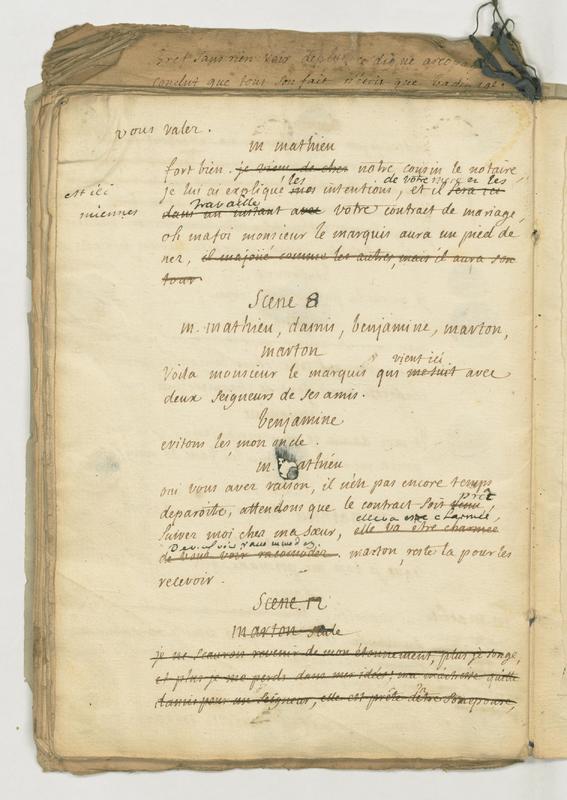 Et et sans rien voir de plus, ce digne
conclut que tout son fait n'etoit que badinage.
vous valez.
m mathieu
fort bien. je viens de chez notre cousin le notaire
je lui ai expliqué mes les intentions, de votre mere et les et il sera ici
est ici
miennes
dans un instant avec travaille votre contract de mariage,
oh mafoi monsieur le marquis aura un pied de
nez, il m'a joüé comme les autres, mais il aura son
tour.
Scene 8
m. mathieu, damis, benjamine, marton,
marton
Voila monsieur le marquis qui me suit vient ici avec
deux seigneurs de ses amis.
benjamine
evitons les, mon oncle.
m. mathieu
oui vous avez raison, il n'est pas encore temps
deparoitre, attendons que le contract soit pret,
suivez moi chez ma sœur, elle va être charmée elle va etre charmée,
de vous voir racomodez. De vous voir racommodez. marton, reste la pour les
recevoir.
Scene. 12
marton seule
je ne scaurois revenir de mon étonnement, plus je songe,
et plus je me perds dans mes idées; ma maitresse quitte
damis pour un seigneur, elle est prête d'être son epouse,